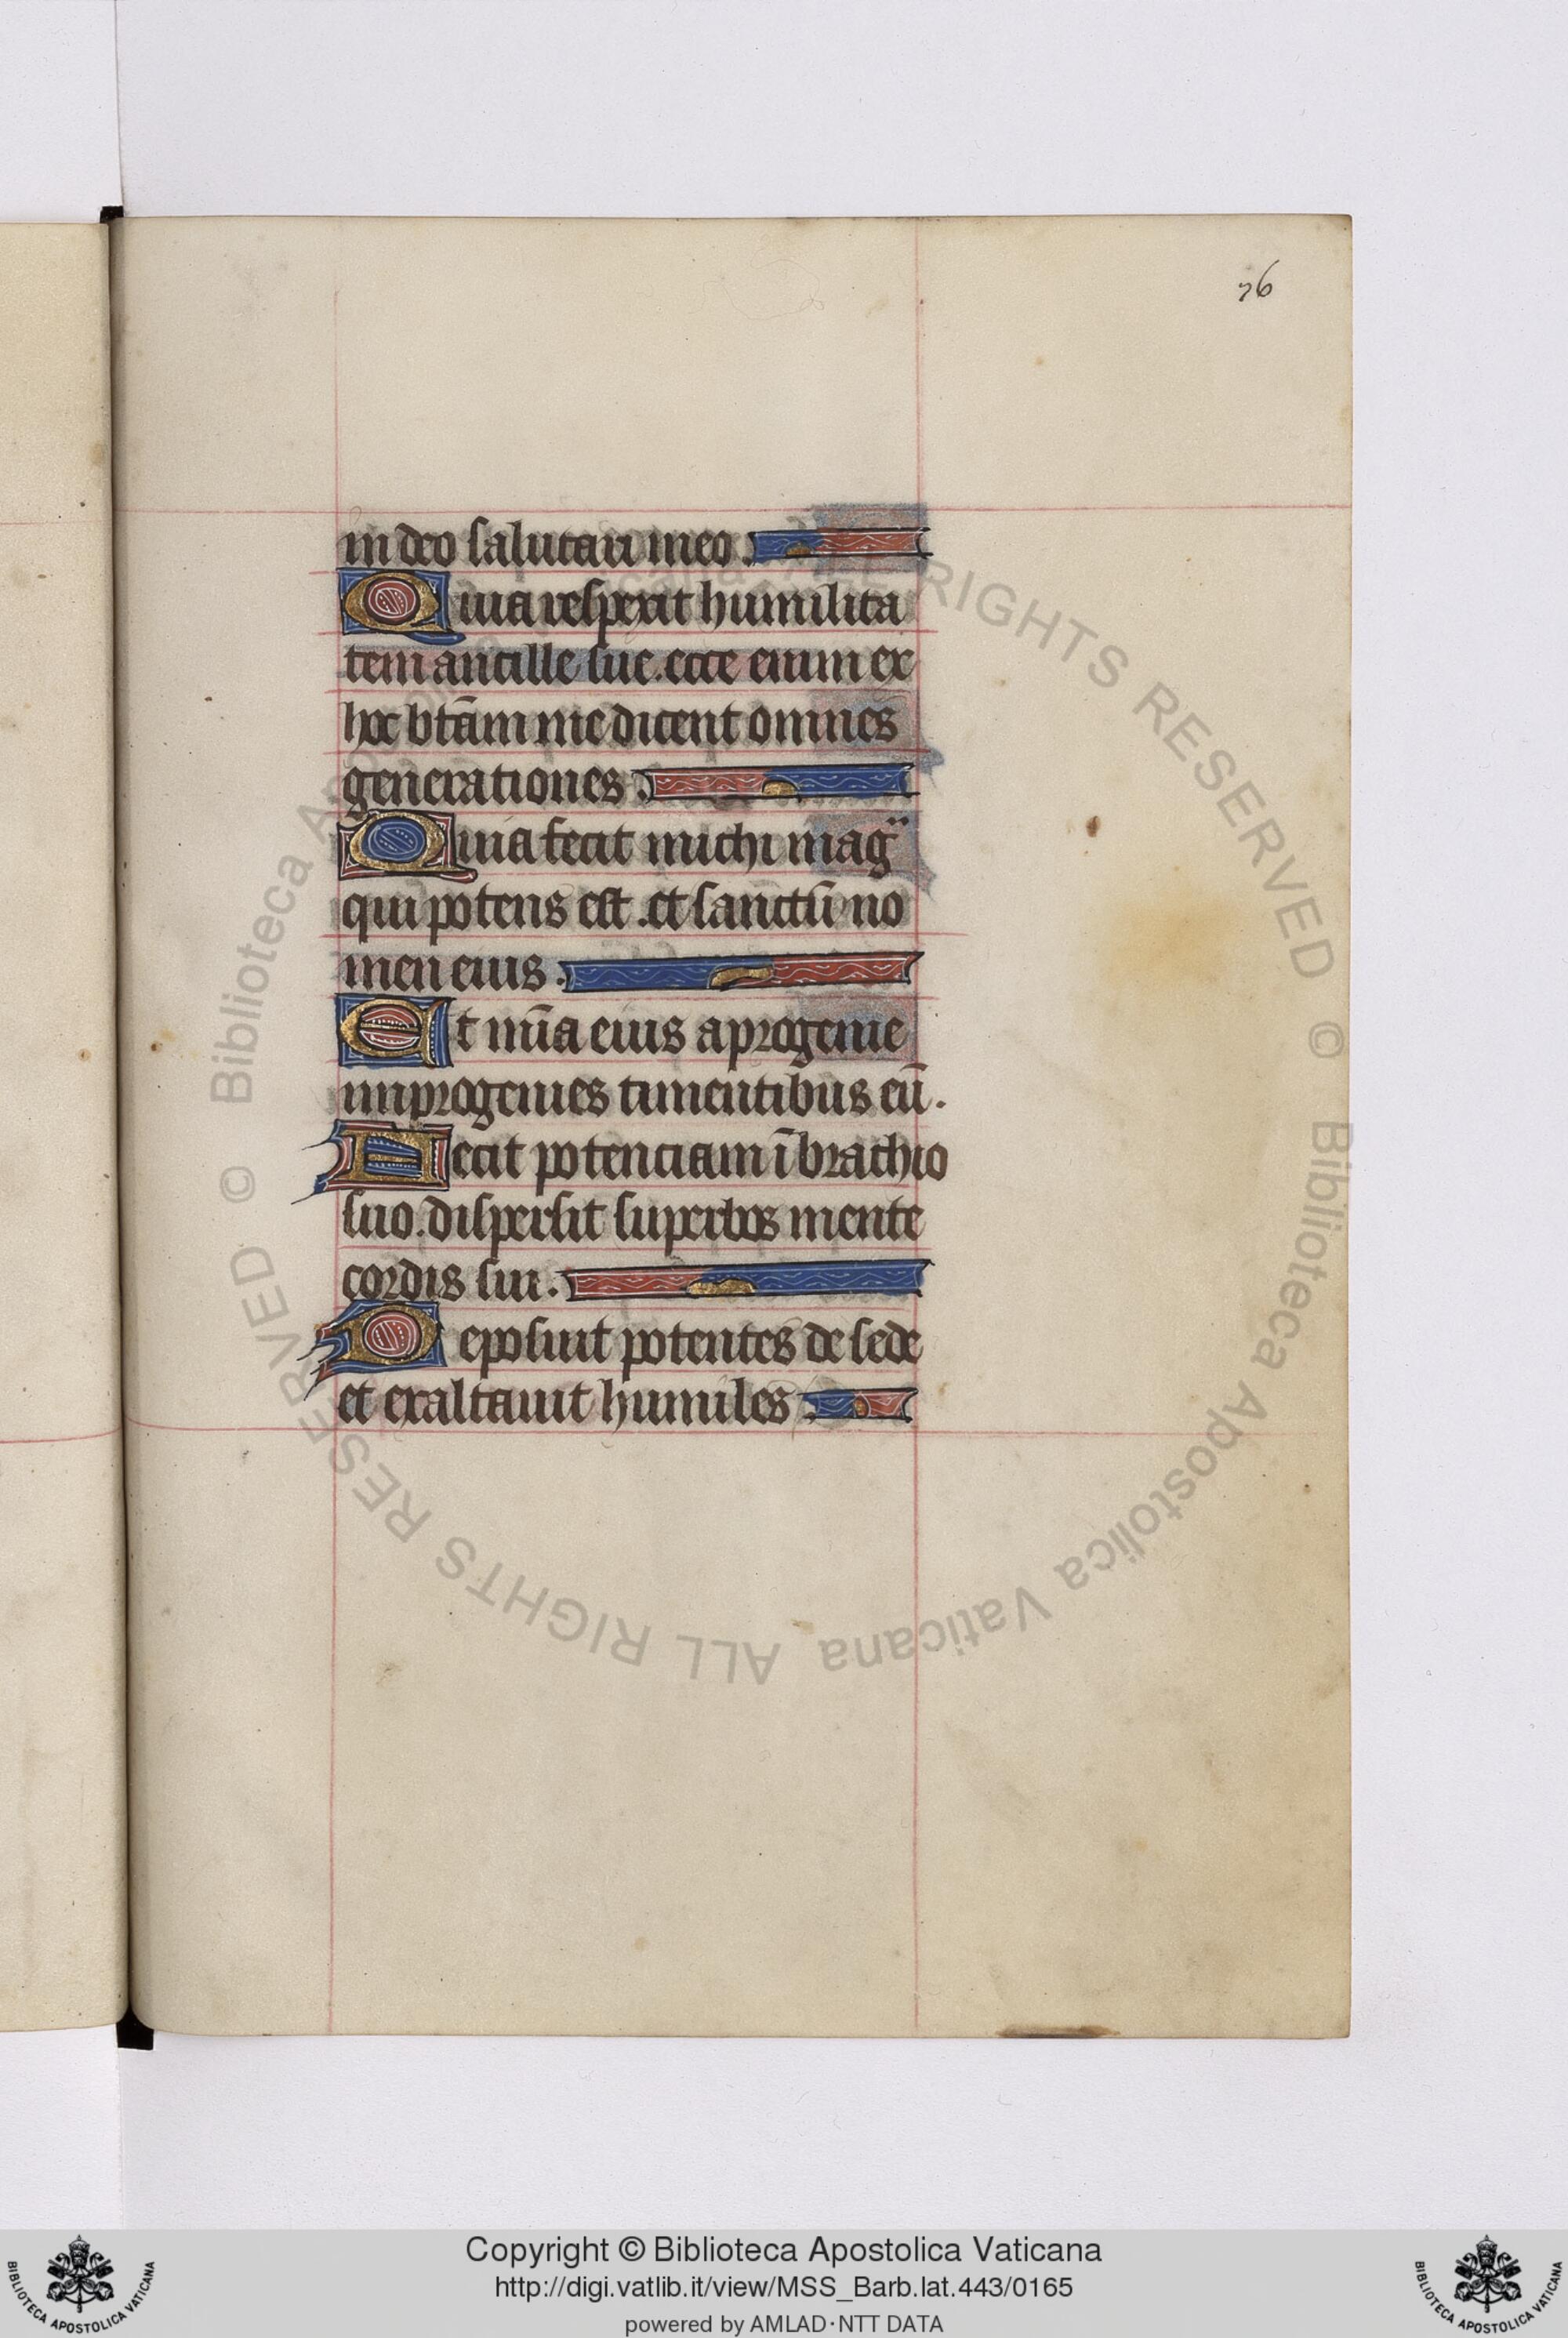 76
in deo salutari meo.
Quia respexit humilita
tem ancille sue. ecce enim ex
hoc btām me dicent omnes
generationes.
Quia fecit michi mag
qui potens est. et sanctū no
men eius.
Et mīa eius a progenie
in progenies timentibus eū.
Fecit potenciam ī brachio
suo. dispersit superbos mente
cordis sui.
Deposuit potentes de sede
et exaltauit humiles
© Biblioteca Apostolica Vaticana ALL RIGHTS RESERVED © Biblioteca Apostolica Vaticana ALL RIGHTS RESERVED
Copyright © Biblioteca Apostolica Vaticana
http://digi.vatlib.it/view/MSS_Barb.lat.443/0165
powered by AMLAD·NTT DATA
BIBLIOTECA APOSTOLICA VATICANA
BIBLIOTECA APOSTOLICA VATICANA